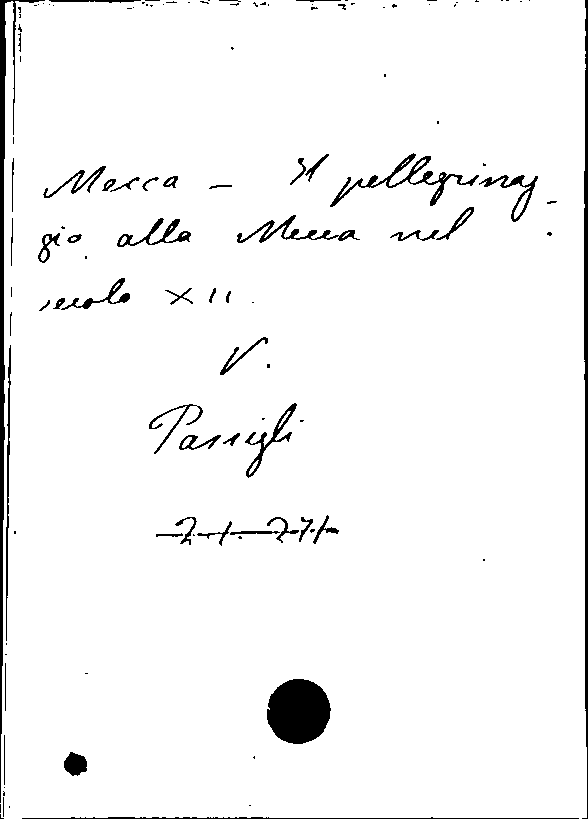 Mecca – Il pellegrinag-
gio alla Mecca nel
secolo XII.
V.
Passigli